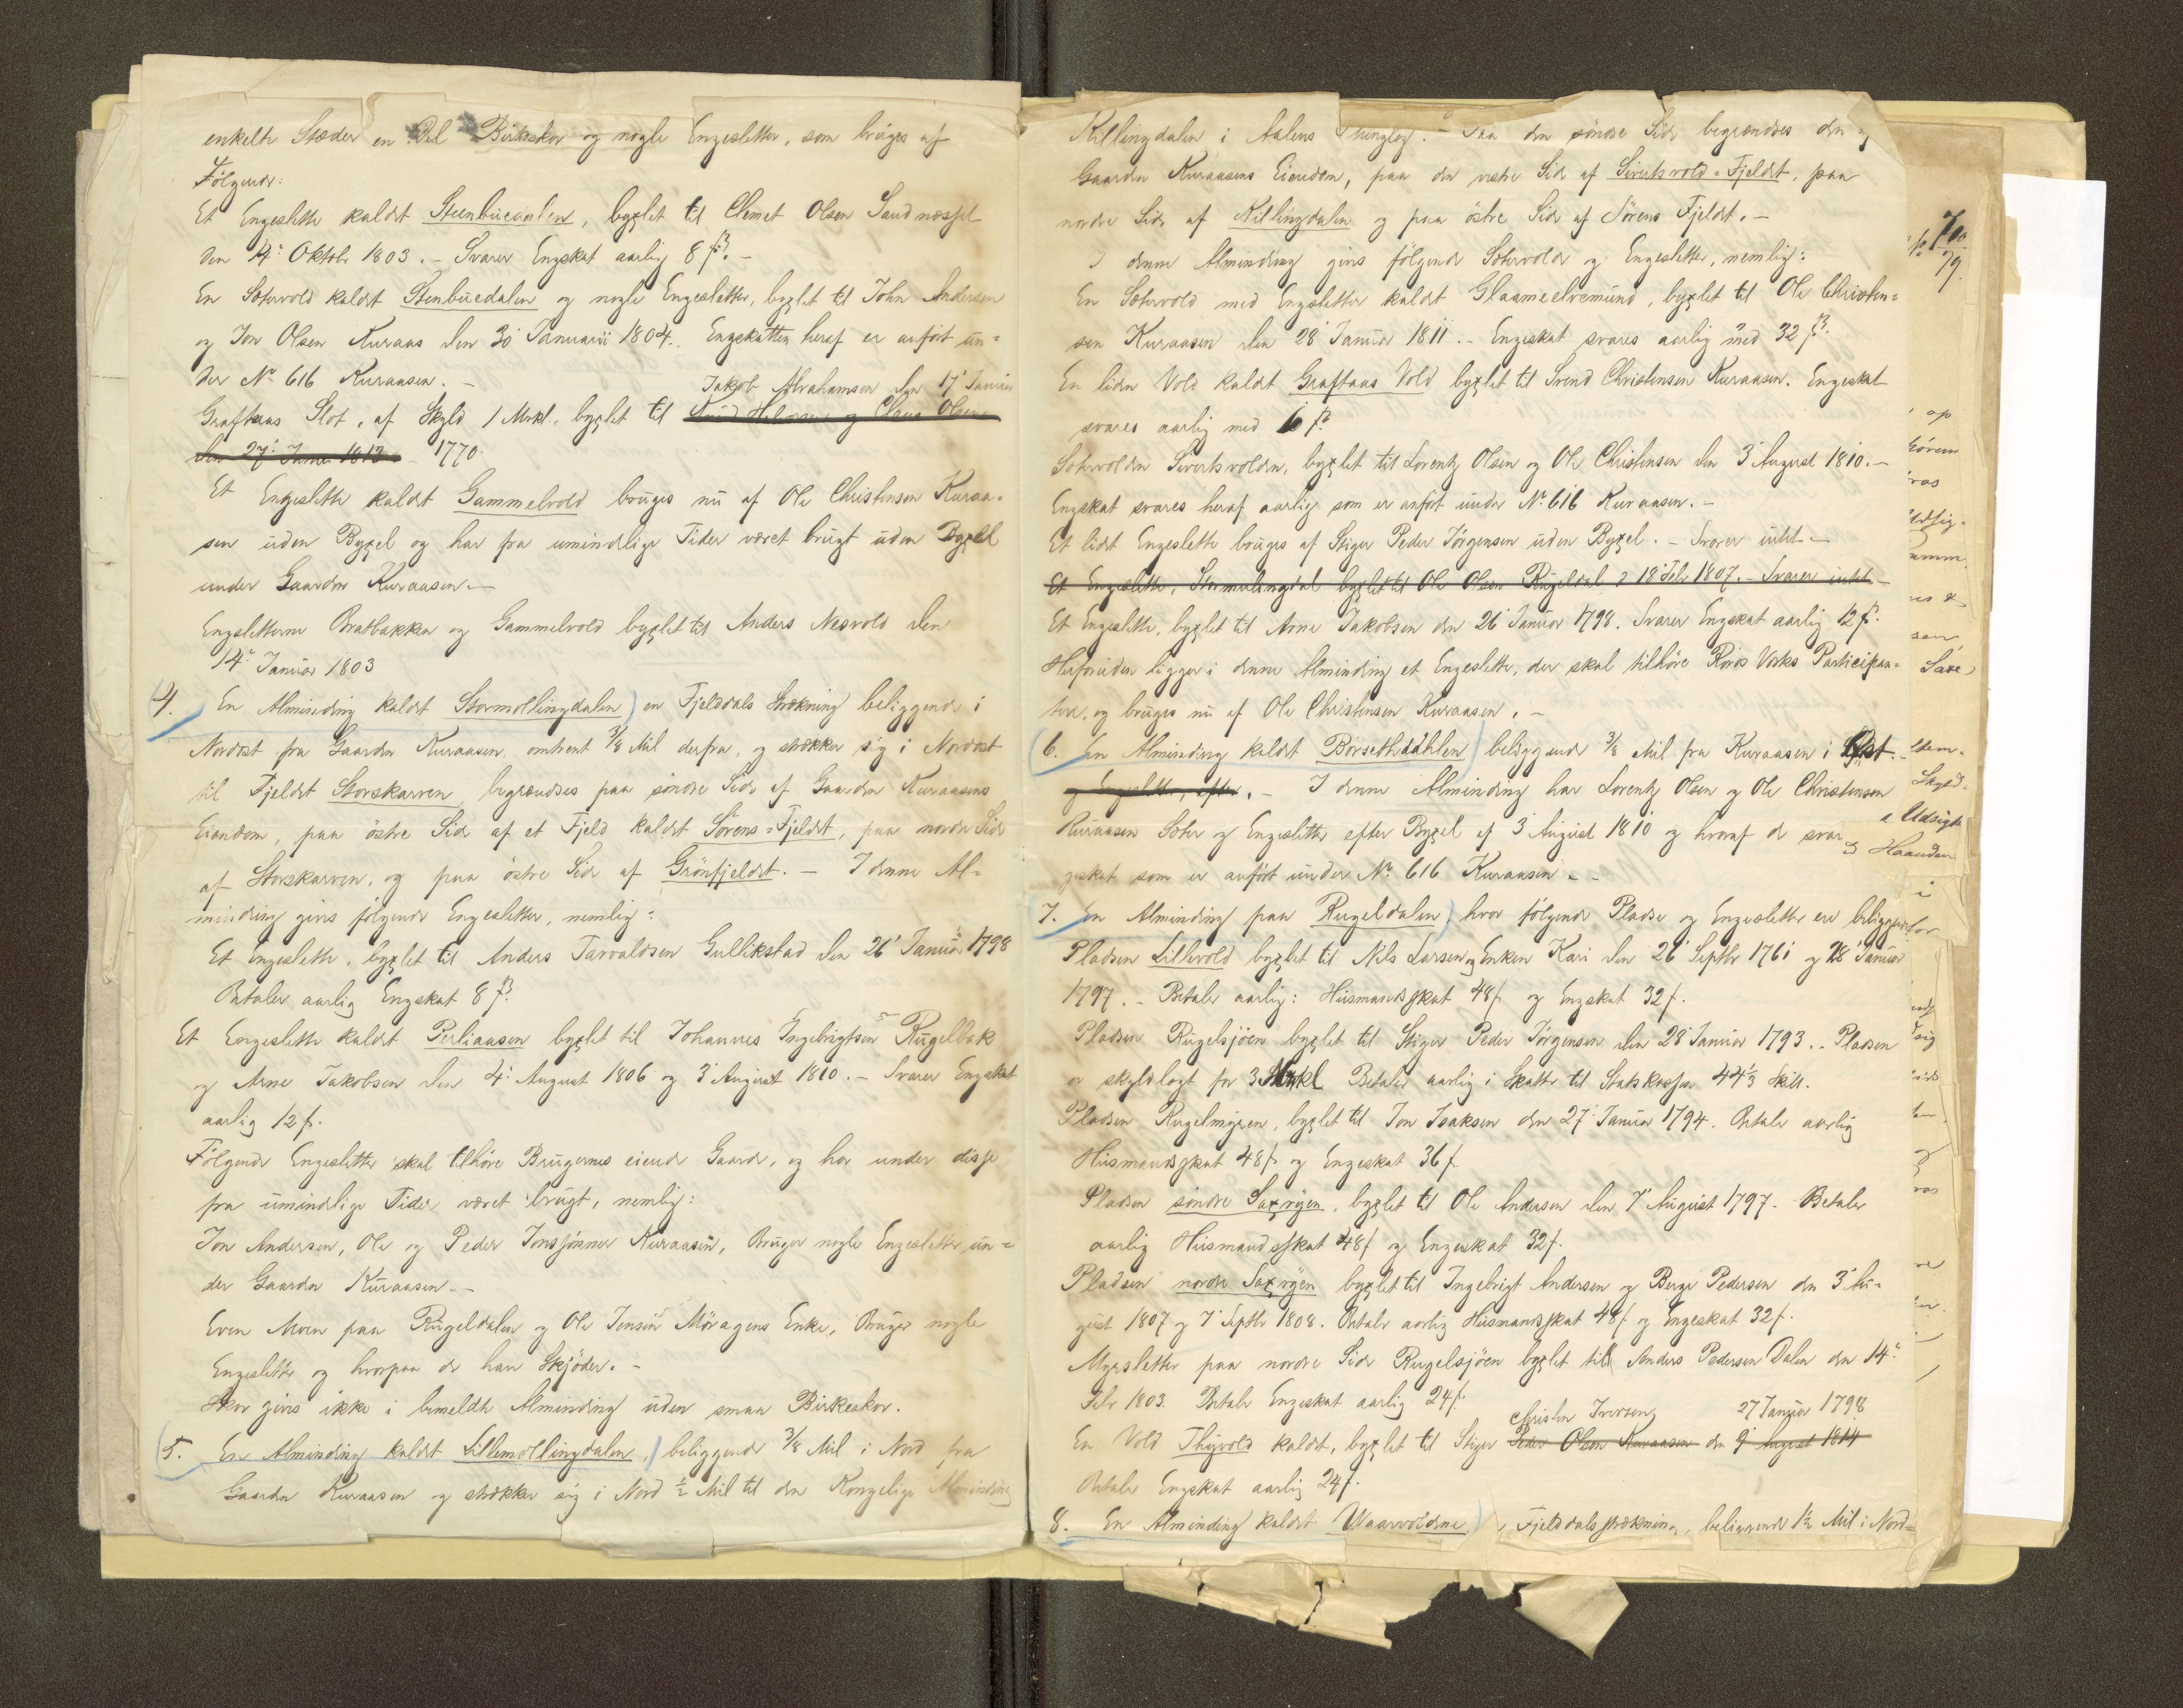 enkelte Stæder en Del Birkeskov og nogle Engesletter, som bruges af
Følgende:
Et Engeslette kaldet Steenbuedalen, bygslet til Clemet Olsen Sandnæsset
den 14de Oktobr 1803. – Svarer Engskat aarlig 8 ß. –
En Sætervold kaldet Stenbuedalen og nogle Engesletter, bygslet til John Andersen
og Jon Olsen Kuraas den 30 Januarii 1804. Engskatten heraf er anført un=
der No 616 Kuraasen. –
Jakob Abrahamsen den 17de Januar
Graftaas Slot, af Skyld 1 Mrkl., bygslet til Olsen
den 27de 1813 – 1770
Et Engeslette kaldet Gammelvold bruges nu af Ole Christensen Kuraa=
sen uden Bygsel og har fra umindelige Tider været brugt uden Bygsel
under Gaarden Kuraasen. –
Engesletterne Bratbakken og Gammelvold bygslet til Anders Nesvold den
14de Januar 1803
4. En Alminding kaldet Stormollingdalen) en Fjelddals Strækning beliggende i
Nordost fra Gaarden Kuraasen, omtrent 3/8 Mil derfra, og strækker sig i Nordost
til Fjeldet Storskarven, begrændses paa søndre Side af Gaarden Kuraasens
Eiendom, paa østre Side af et Fjeld kaldet Sörens=Fjeldet, paa nordre Side
af Storskarven, og paa østre Side af Grönfjeldet. – I denne Al=
minding gives følgende Engesletter, nemlig:
Et Engeslette, bygslet til Anders Tarvaldsen Gullikstad den 26de Januar 1798
Betaler aarlig Engskat 8 ß.
Et Engeslette kaldet Perliaasen bygslet til Johannes Ingebrigtsen Rugelbak
og Arne Jakobsen den 4de August 1806 og 3de August 1810. – Svarer Engskat
aarlig 12 ß.
Følgende Engesletter skal tilhöre Brugernes eiende Gaarde, og har under disse
fra umindelige Tider været brugt, nemlig:
Jon Andersen, Ole og Peder Kuraasen, Bruger nogle Engesletter un=
der Gaarden Kuraasen. –
Even Moen paa Rugeldalen og Ole Jensen Möragens Enke, Bruger nogle
Engeslette og hvorpaa de have Skjöder. –
Skov gives ikke i bemeldte Alminding uden smaa Birkeskov.
(5. En Alminding kaldet Lillemollingdalen,) beliggende 3/8 Mil i Nord fra
Gaarden Kuraasen og strækker sig i Nord 1/2 Mil til den Kongelige Alminding
Killingdalen i Aalens Thinglag. – Paa den söndre Side begrændses den af
Gaarden Kuraasens Eiendom, paa den vestre Side af Siverts vold=Fjeldet, paa
nordre Side af Killingdalen og paa östre Side af Sörens Fjeldet. –
I denne Alminding gives følgende Sætervolde og Engesletter, nemlig:
En Sætervold med Engesletter kaldet Glaameelvemund, bygslet til Ole Christen=
sen Kuraasen den 28de Januar 1811. – Engeskat svares aarlig med 32 ß.
En liden Vold kaldet Graftaas Vold bygslet til Svend Christensen Kuraasen. Engeskat
svares aarlig med 6 ß.
Sætervolden Sivertsvolden, bygslet til Lorentz Olsen og Ole Christensen den 3de August 1810. –
Engskat svares heraf aarlig som er anfört under No 616 Kuraasen. –
Et lidet Engeslette bruges af Stiger Peder Jörgensen uden Bygsel. – Svarer intet. –
Et Engeslette, Stormulingdal bygslet til Ole Olsen Rugeldal d 18 Febr 1807. – Svarer intet –
Et Engeslette, bygslet til Arne Jakobsen den 26de Januar 1798. Svarer Engskat aarlig 12 ß.
Herforuden ligger i denne Alminding et Engeslette, der skal tilhöre Röros Verks Participan=
tere, og bruges nu af Ole Christensen Kuraasen. –
(6. En Alminding kaldet Borsethdahlen) beliggende 3/8 Mil fra Kuraasen i Öst. –
og Engesletter, efter. – I denne Alminding har Lorentz Olsen og Ole Christensen
Kuraasen Sæter og Engeslette efter Bygsel af 3de August 1810 og hvoraf de svar
geskat som er anfört under No 616 Kuraasen. –
7. En Alminding paa Rugeldalen) hvor følgende Pladse og Engesletter ere beliggende
Pladsen Lillevold bygslet til Nils Larsen og Enken Kari den 26de Septbr 1761 og 28de Januar
1797. – Betaler aarlig: Huusmandsskat 48 ß og Engskat 32 ß.
Pladsen Rugelsjöen bygslet til Stiger Peder Jörgensen den 28de Januar 1793. – Pladsen
er skyldlagt for 3 Mrkl Betaler aarlig i Skatter til Statskassen 44 1/3 Skill.
Pladsen Rugelmyren, bygslet til Jon Isaksen den 27de Januar 1794. Betaler aarlig
Huusmandsskat 48 ß og Engeskat 36 ß
Pladsen söndre Saxröyen, bygslet til Ole Andersen den 7de August 1797. Betaler
aarlig Huusmandsskat 48 ß og Engeskat 32 ß.
Pladsen nordre Saxröyen bygslet til Ingebrigt Andersen og Berge Pedersen den 3de Au=
gust 1807 og 7de Septbr 1808. Betaler aarlig Huusmandsskat 48 ß og Engeskat 32 ß.
Myrsletter paa nordre Side Rugelsjöen bygslet till Anders Pedersen Dalen den 14de
Febr 1803. Betaler Engeskat aarlig 24 ß.
Christen Iversen 27 Januar 1798
En Vold Thyvold kaldet, bygslet til Stiger Peder Olsen Kuraasen den 9de August 1814
Betaler Engskat aarlig 24 ß.
8. En Alminding kaldet Waarvoldene) , Fjelddalsstrækning, beliggende 1 1/2 Mil i Nord=
79.
op
ras
sen
Saxe
Skyld
Udsigt
Haanden
i
for
ras